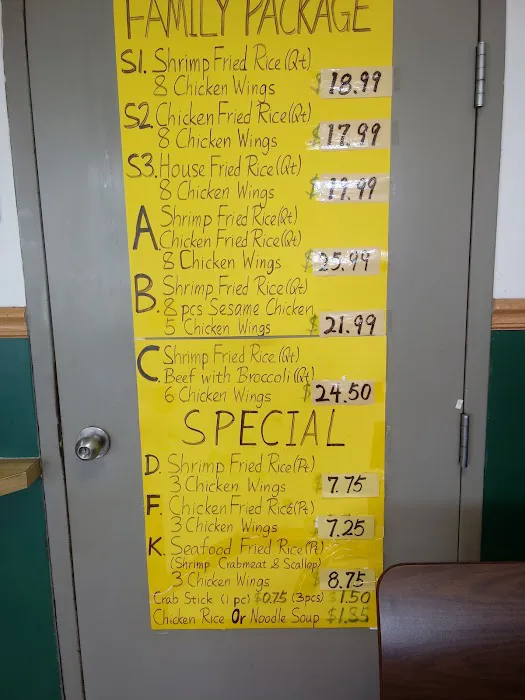 FAMILY PACKAGE
S1. Shrimp Fried Rice (Qt)
8 Chicken Wings $18.99
S2. Chicken Fried Rice (Qt)
8 Chicken Wings $17.99
S3. House Fried Rice (Qt)
8 Chicken Wings $19.99
A Shrimp Fried Rice (Qt)
Chicken Fried Rice (Qt)
8 Chicken Wings $25.99
B. Shrimp Fried Rice (Qt)
8 pcs Sesame Chicken
5 Chicken Wings $21.99
C. Shrimp Fried Rice (Qt)
Beef with Broccoli (Qt)
6 Chicken Wings $24.50
SPECIAL
D. Shrimp Fried Rice (Pt)
3 Chicken Wings 7.75
F. Chicken Fried Rice (Pt)
3 Chicken Wings 7.25
K. Seafood Fried Rice (Pt)
(Shrimp Crabmeat & Scallop)
3 Chicken Wings 8.75
Crab Stick (1 pc) $0.75 (3pcs) $1.50
Chicken Rice Or Noodle Soup